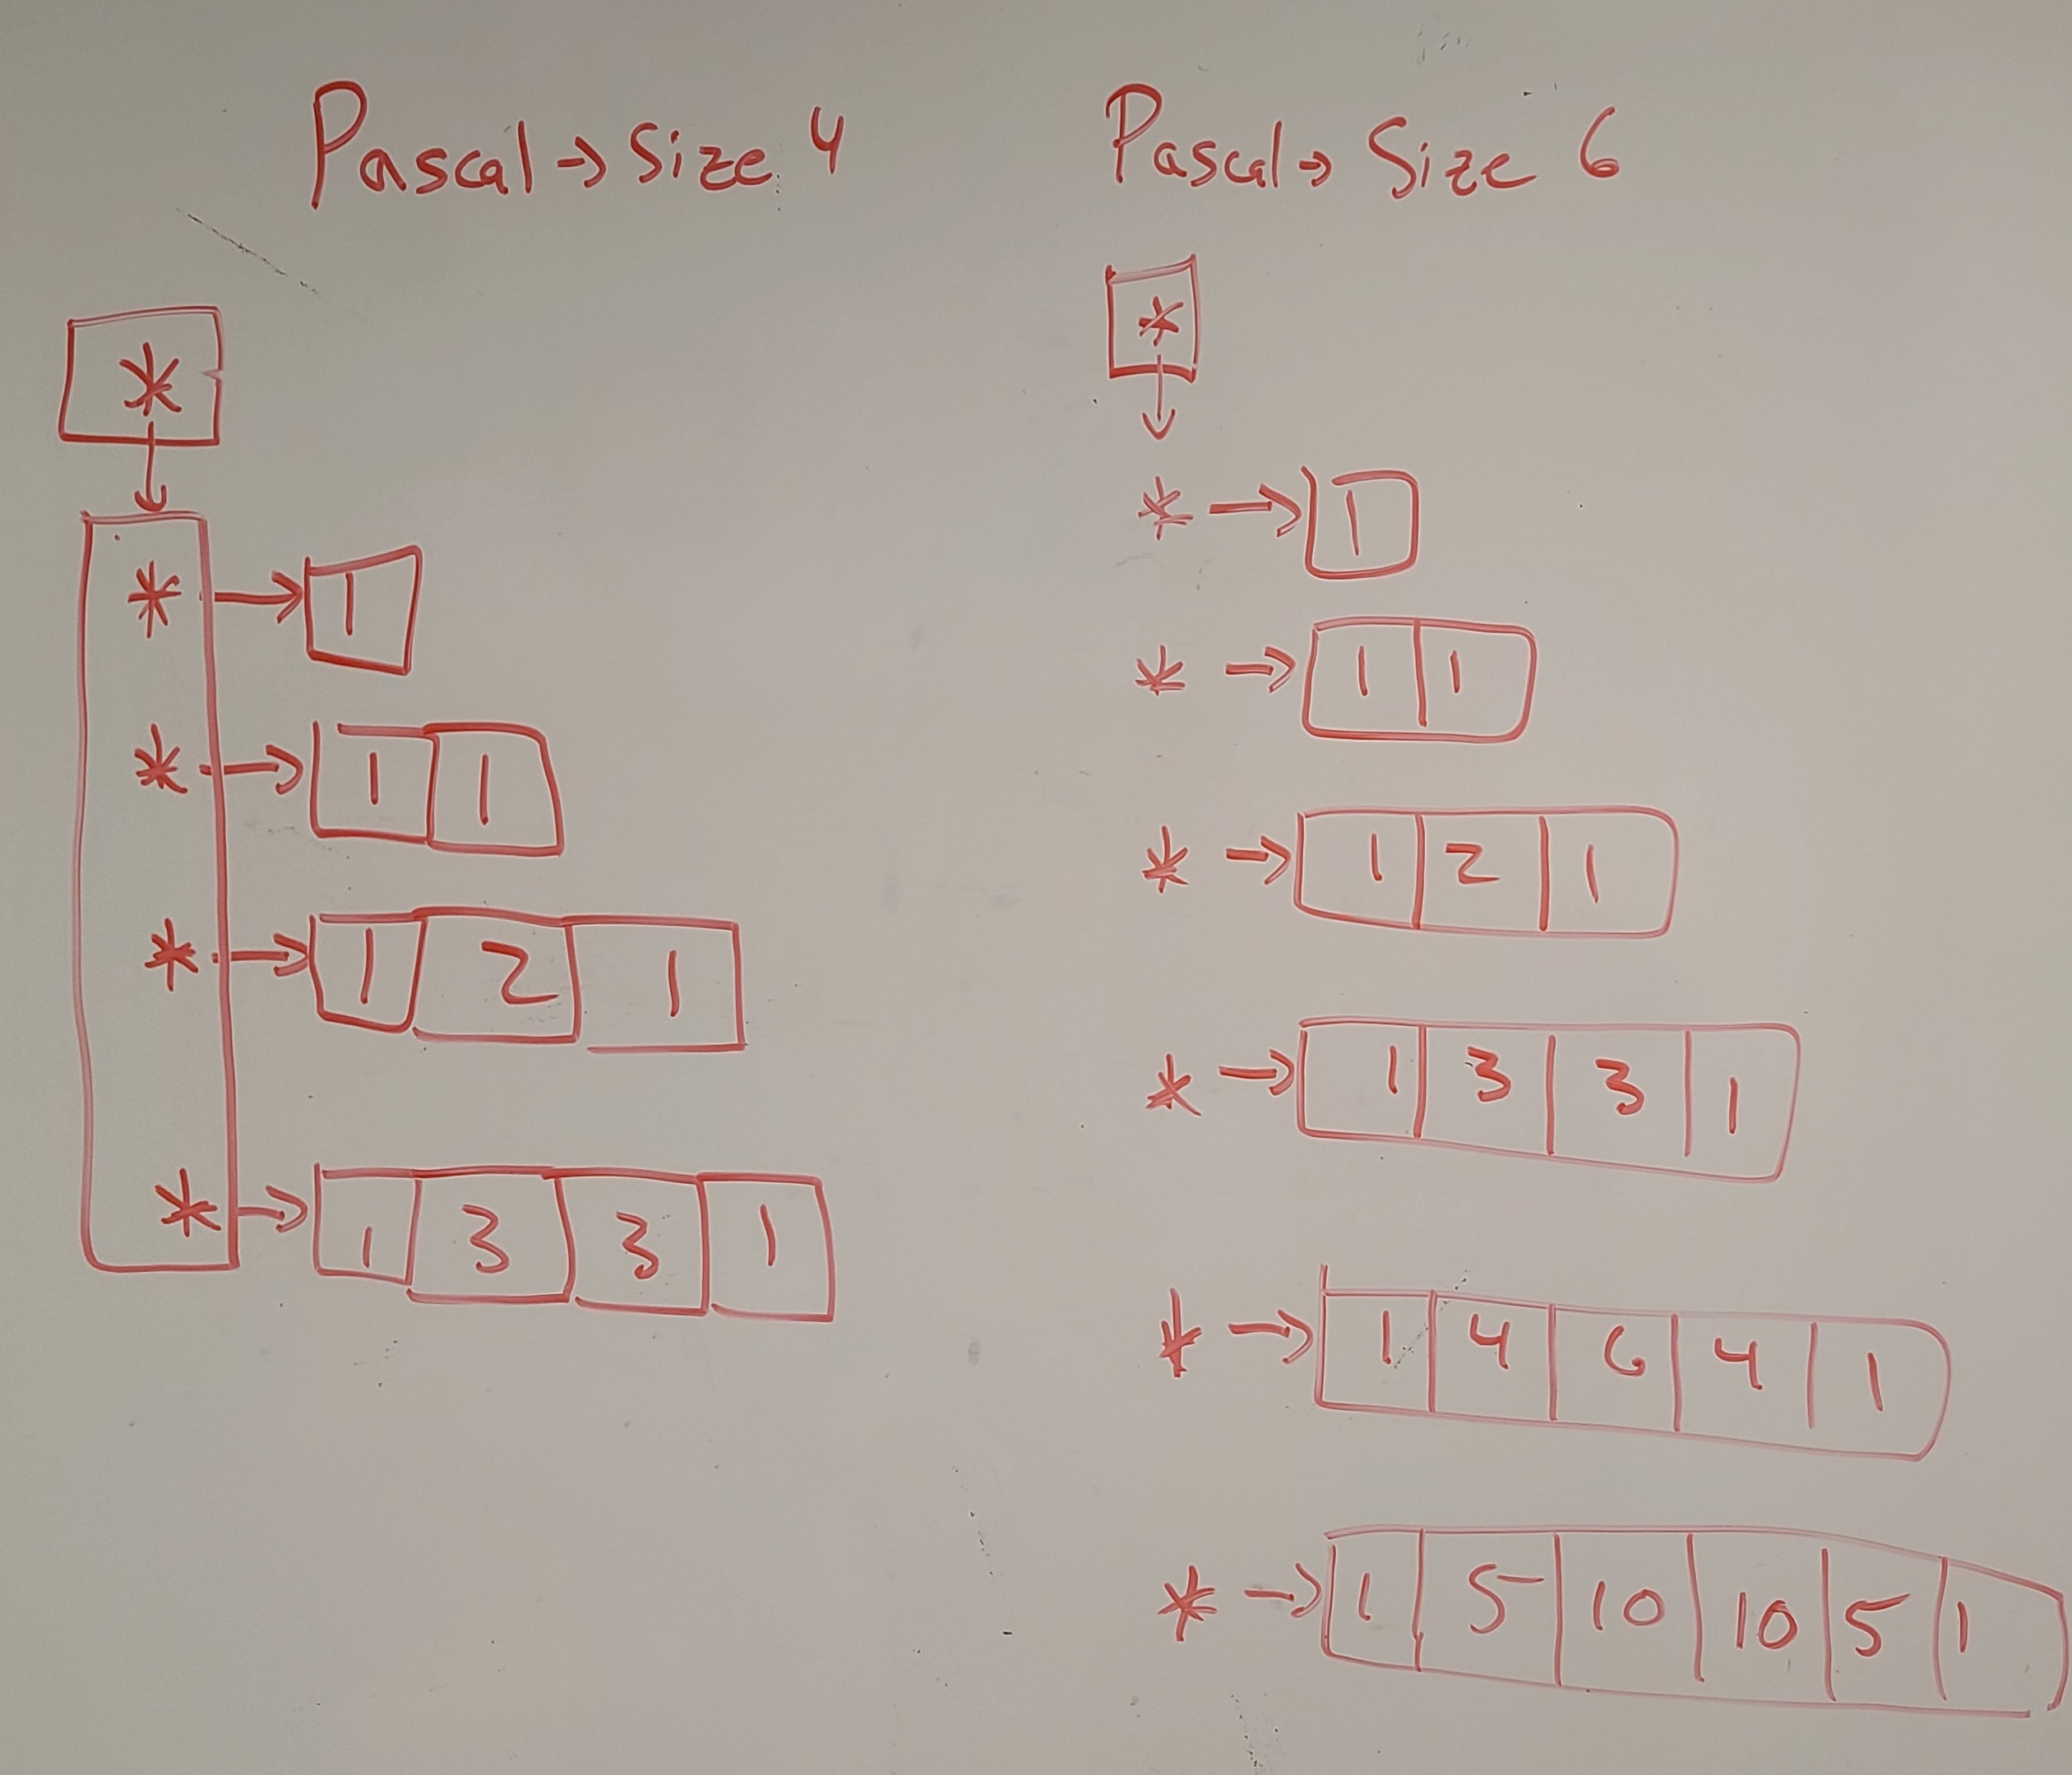 Pascal → Size 4
*
* → 1
* → 1 1
* → 1 2 1
* → 1 3 3 1
Pascal → Size 6
*
* → 1
* → 1 1
* → 1 2 1
* → 1 3 3 1
* → 1 4 6 4 1
* → 1 5 10 10 5 1